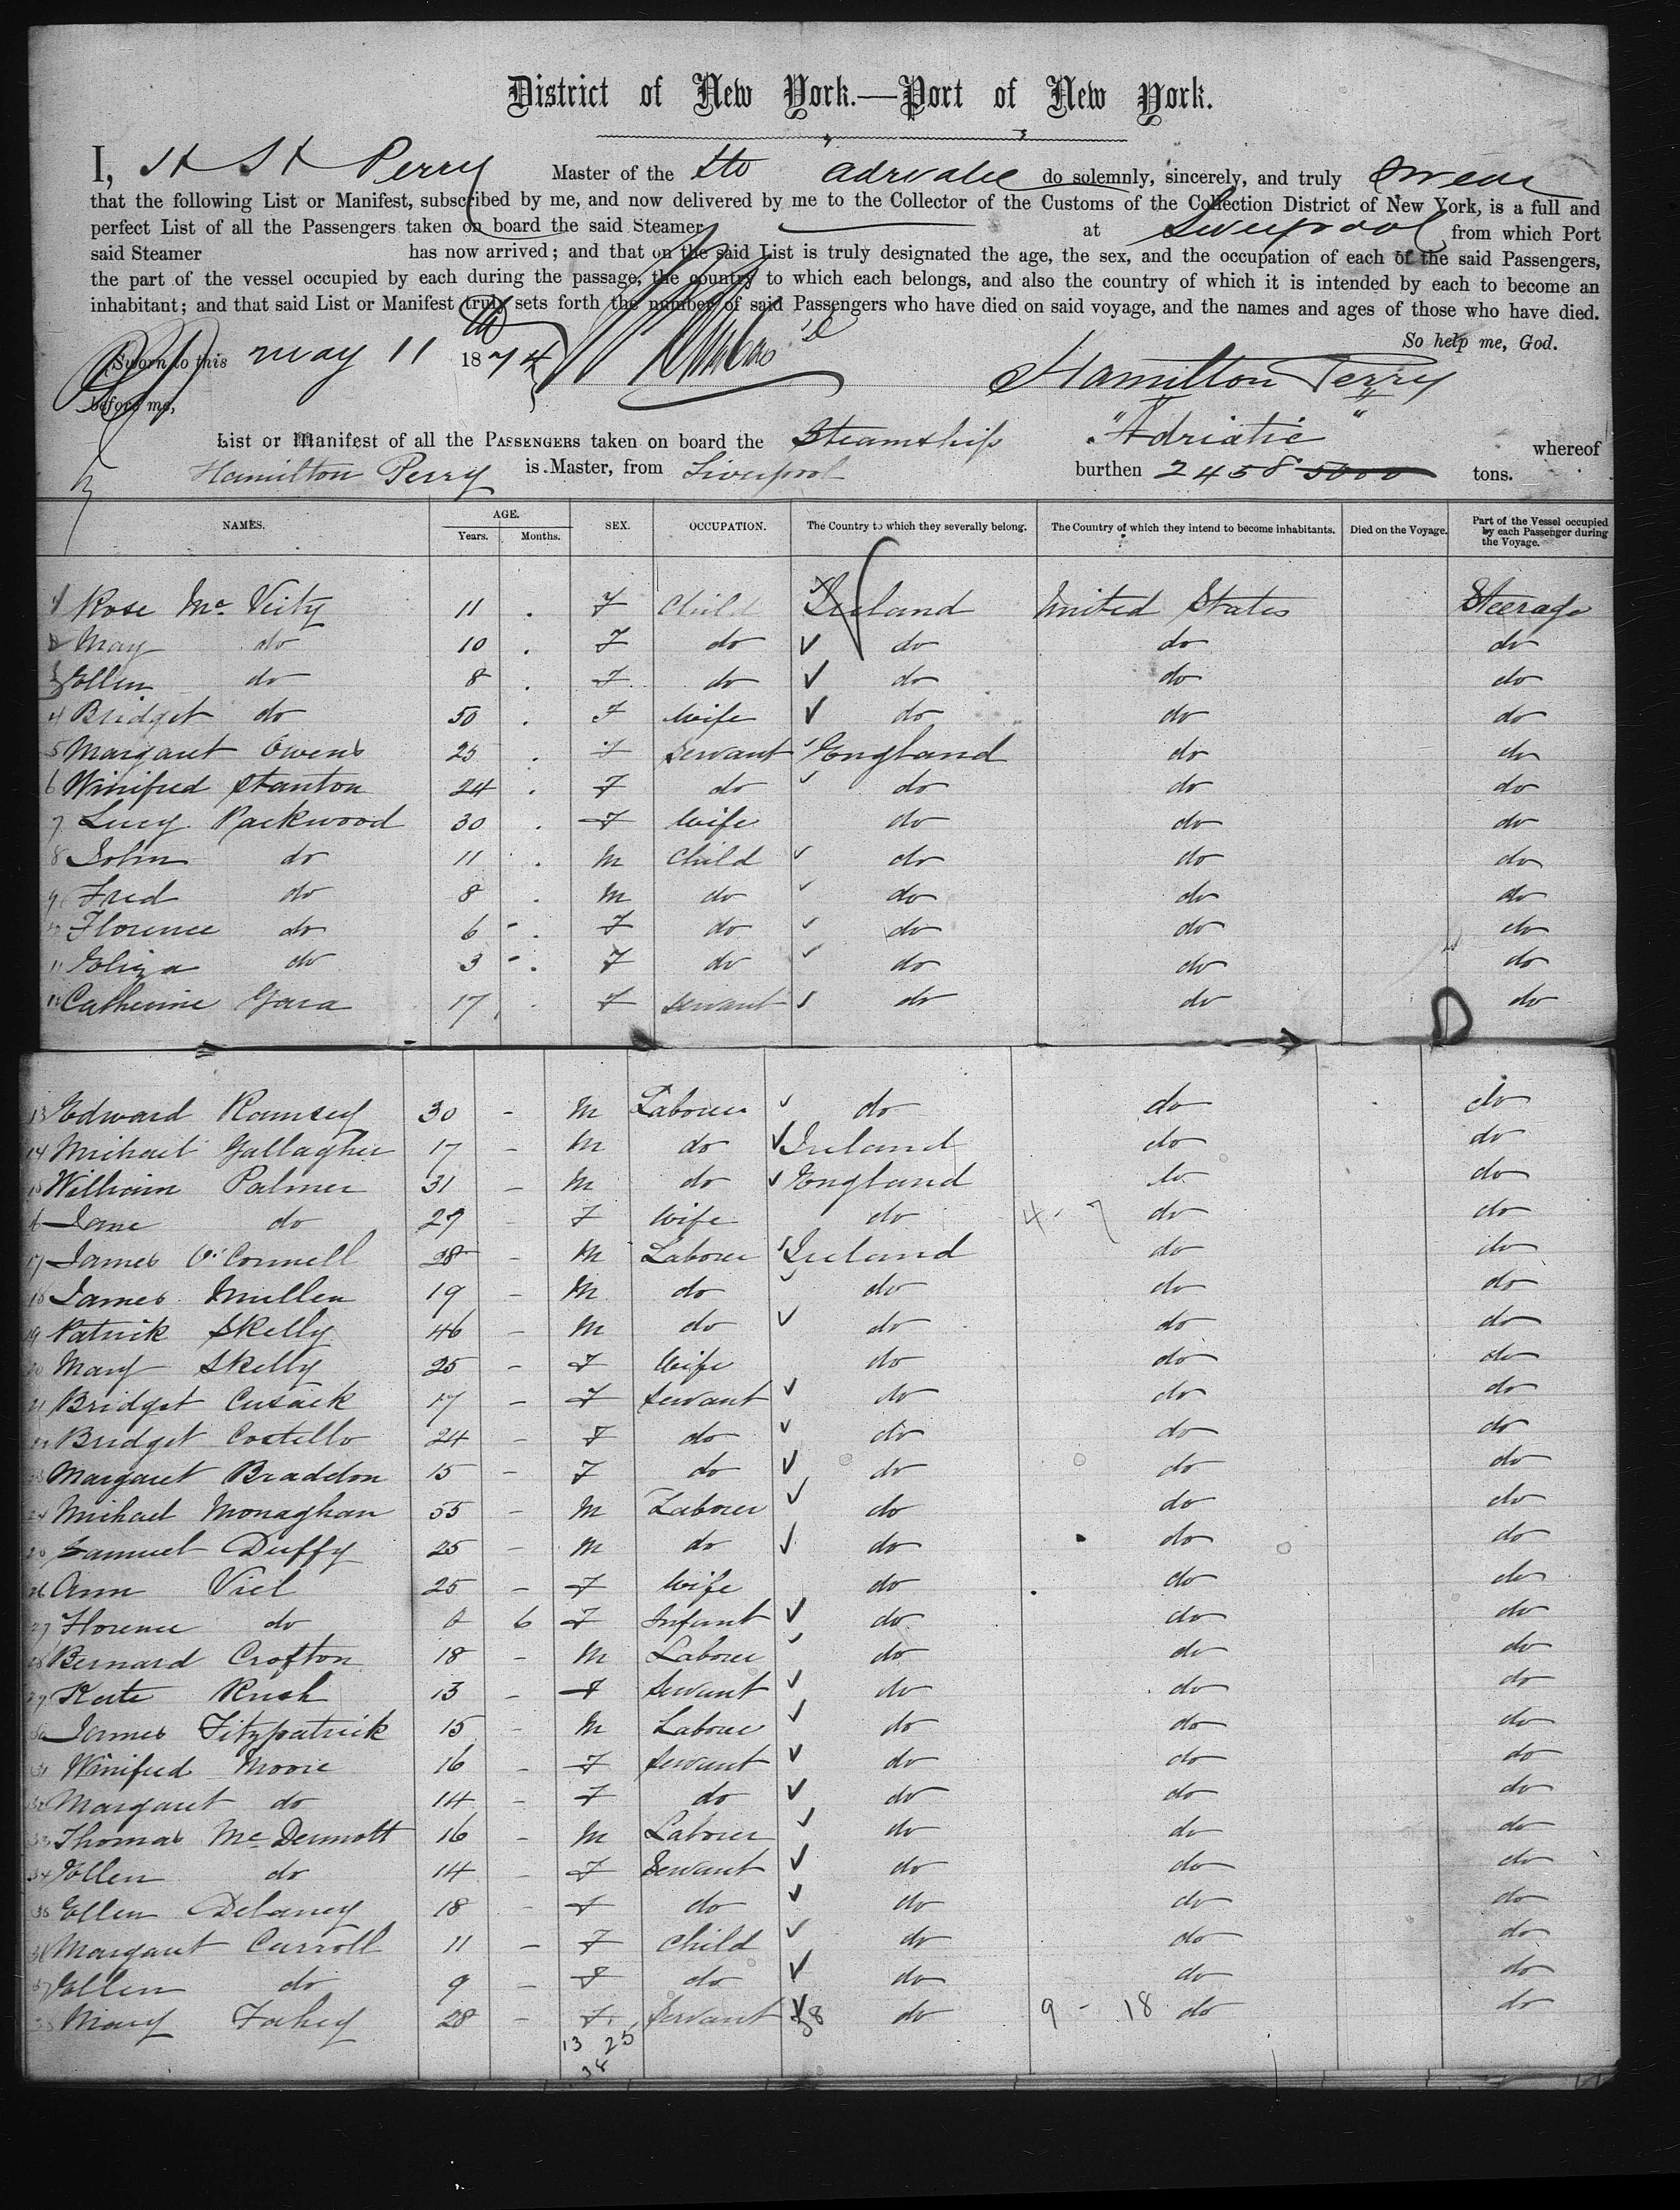 District of New York.—Port of New York.
I, H H Perry Master of the Str Adriatic do solemnly, sincerely, and truly swear
that the following List or Manifest, subscribed by me, and now delivered by me to the Collector of the Customs of the Collection District of New York, is a full and
perfect List of all the Passengers taken on board the said Steamer at Liverpool from which Port
said Steamer has now arrived; and that on the said List is truly designated the age, the sex, and the occupation of each of the said Passengers,
the part of the vessel occupied by each during the passage, the country to which each belongs, and also the country of which it is intended by each to become an
inhabitant; and that said List or Manifest truly sets forth the number of said Passengers who have died on said voyage, and the names and ages of those who have died.
So help me, God.
Sworn to this May 11 th 1874
before me,
Hamilton Perry
List or Manifest of all the PASSENGERS taken on board the Steamship "Adriatic" whereof
Hamilton Perry is Master, from Liverpool burthen 2458 5000 tons.
NAMES. AGE. SEX. OCCUPATION. The Country to which they severally belong. The Country of which they intend to become inhabitants. Died on the Voyage. Part of the Vessel occupied by each Passenger during the Voyage.
Years. Months.
1 Rose Mc Veity 11 . F Child Ireland United States Steerage
2 May do 10 . F do do do do
3 Ellen do 8 . F do do do do
4 Bridget do 50 . F Wife do do do
5 Margaret Owens 25 . F Servant England do do
6 Winifred Stanton 24 . F do do do do
7 Lucy Packwood 30 . F Wife do do do
8 John do 11 . M Child do do do
9 Fred do 8 . M do do do do
10 Florence do 6 . F do do do do
11 Eliza do 3 . F do do do do
12 Catherine Gara 17 . F Servant do do do
13 Edward Ramsey 30 - M Laborer do do do
14 Michael Gallagher 17 - M do Ireland do do
15 William Palmer 31 - M do England do do
16 Jane do 27 - F Wife do 4 - 7 do do
17 James O'Connell 28 - M Laborer Ireland do do
18 James Mullen 19 - M do do do do
19 Patrick Skelly 46 - M do do do do
20 Mary Skelly 25 - F Wife do do do
21 Bridget Cusack 17 - F Servant do do do
22 Bridget Costello 24 - F do do do do
23 Margaret Braddon 15 - F do do do do
24 Michael Monaghan 55 - M Laborer do do do
25 Samuel Duffy 25 - M do do do do
26 Ann Viel 25 - F Wife do do do
27 Florence do 0 6 F Infant do do do
28 Bernard Crofton 18 - M Laborer do do do
29 Kate Rush 13 - F Servant do do do
30 James Fitzpatrick 15 - M Laborer do do do
31 Winifred Moore 16 - F Servant do do do
32 Margaret do 14 - F do do do do
33 Thomas Mc Dermott 16 - M Laborer do do do
34 Ellen do 14 - F Servant do do do
35 Ellen Delaney 18 - F do do do do
36 Margaret Carroll 11 - F Child do do do
37 Ellen do 9 - F do do do do
38 Mary Fahey 28 - F Servant 38 do 9 - 18 do do
13 25
38